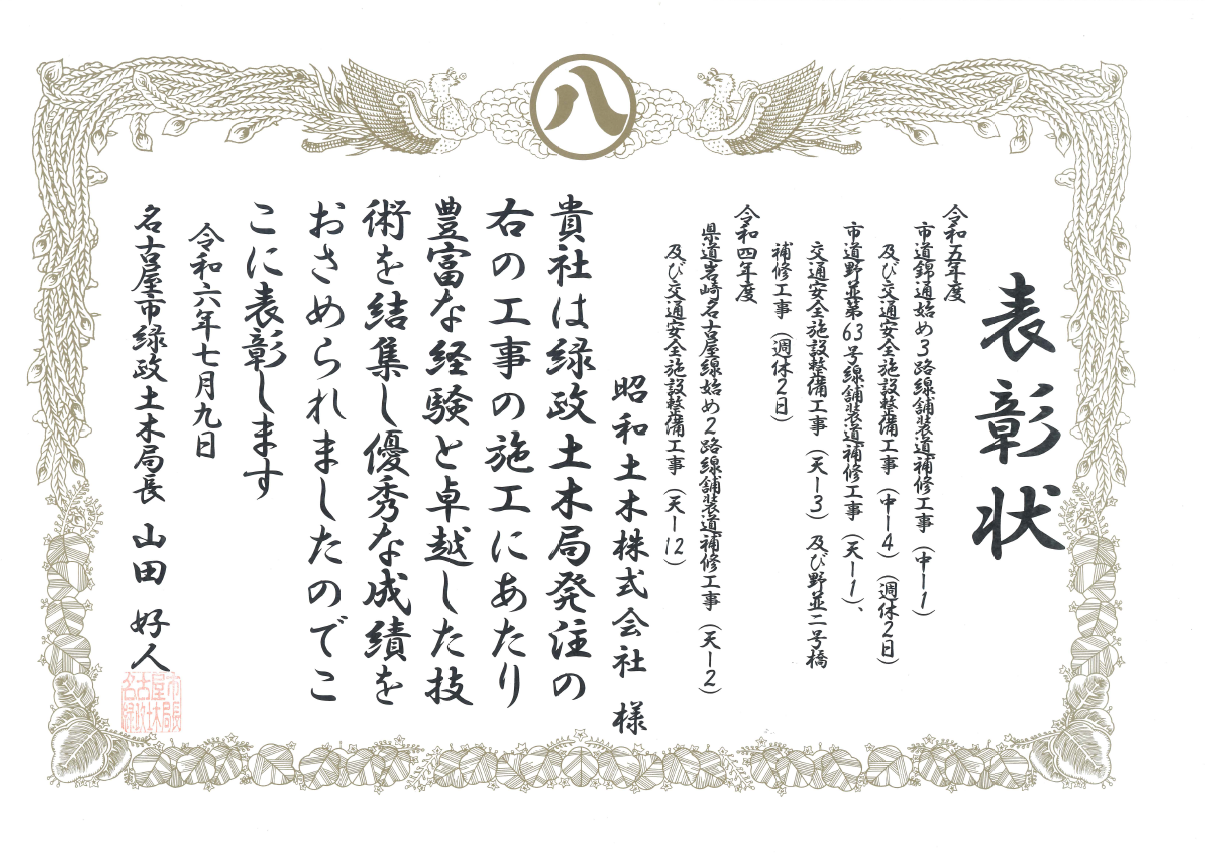 八
表彰状
令和五年度
市道錦通始め3路線舗装道補修工事（中ー1）
及び交通安全施設整備工事（中ー4）（週休2日）
市道野並第63号線舗装道補修工事（天ー1）、
交通安全施設整備工事（天ー3）及び野並二号橋
補修工事（週休2日）
令和四年度
県道岩崎名古屋線始め2路線舗装道補修工事（天ー2）
及び交通安全施設整備工事（天ー12）
昭和土木株式会社 様
貴社は緑政土木局発注の
右の工事の施工にあたり
豊富な経験と卓越した技
術を結集し優秀な成績を
おさめられましたのでこ
こに表彰します
令和六年七月九日
名古屋市緑政土木局長 山田 好人
名古屋市
緑政土木局長